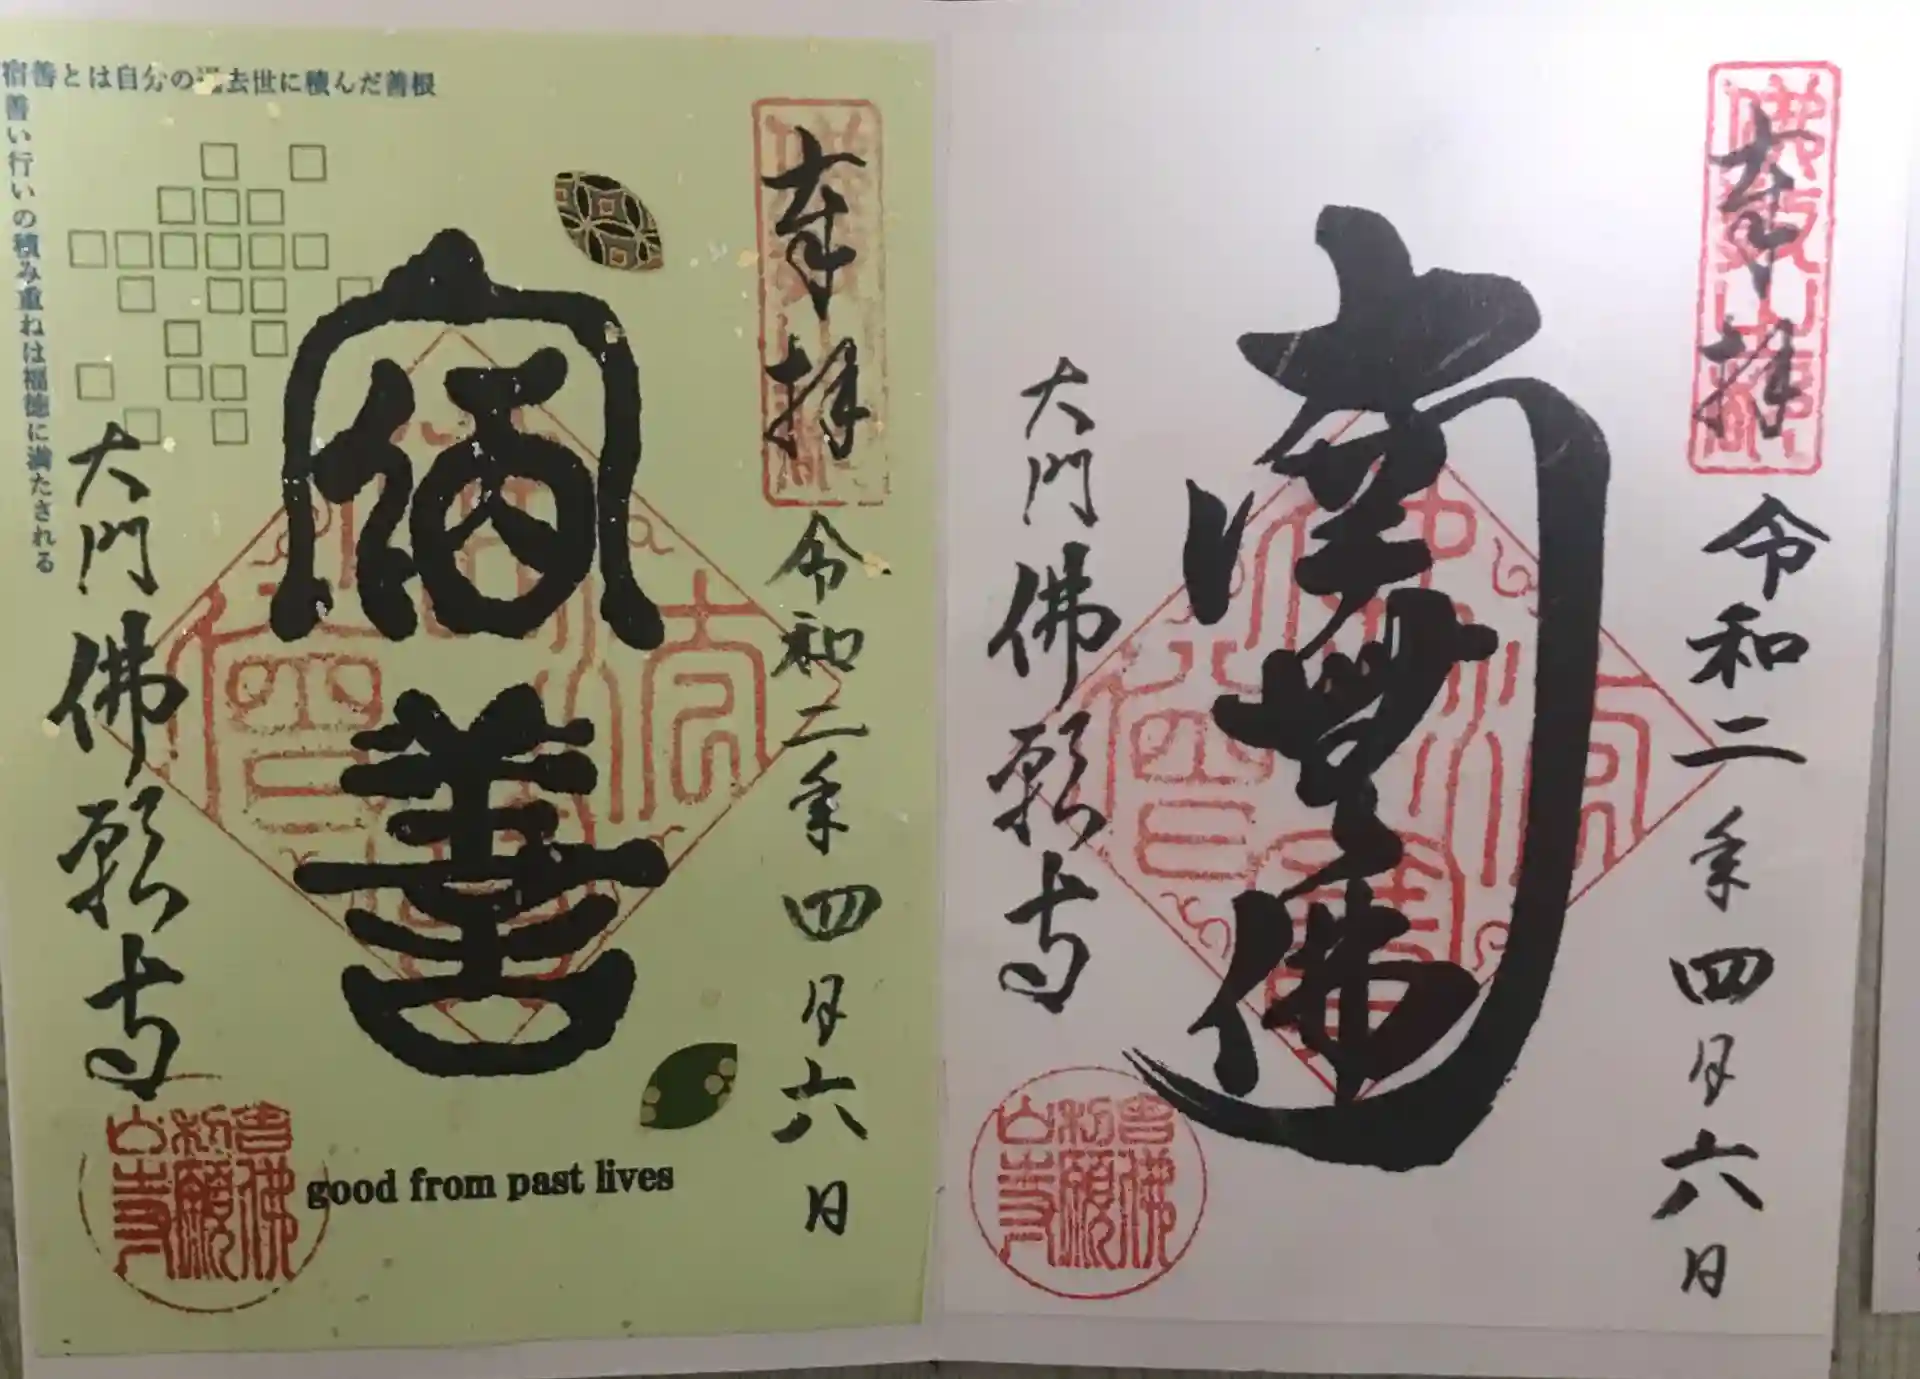 宿善とは自分の過去世に積んだ善根
善い行いの積み重ねは福徳に満たされる
奉拝
令和二年四月六日
宿善
大門佛願寺
good from past lives
奉拝
令和二年四月六日
南無佛
大門佛願寺